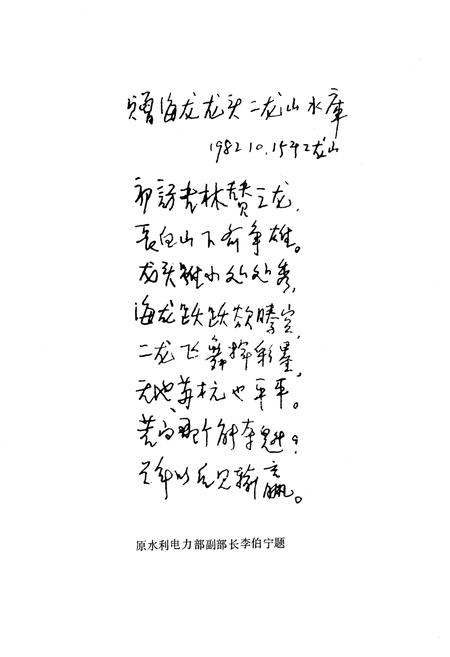 赠海龙龙头二龙山水库
1982.10.15于二龙山
初访吉林赞三龙,
长白山下有争雄。
龙头虽小处处秀,
海龙跃跃欲腾空,
二龙飞舞挥彩墨,
苏杭也平平。
若问那个能夺魁?
年以后见输赢。
原水利电力部副部长李伯宁题